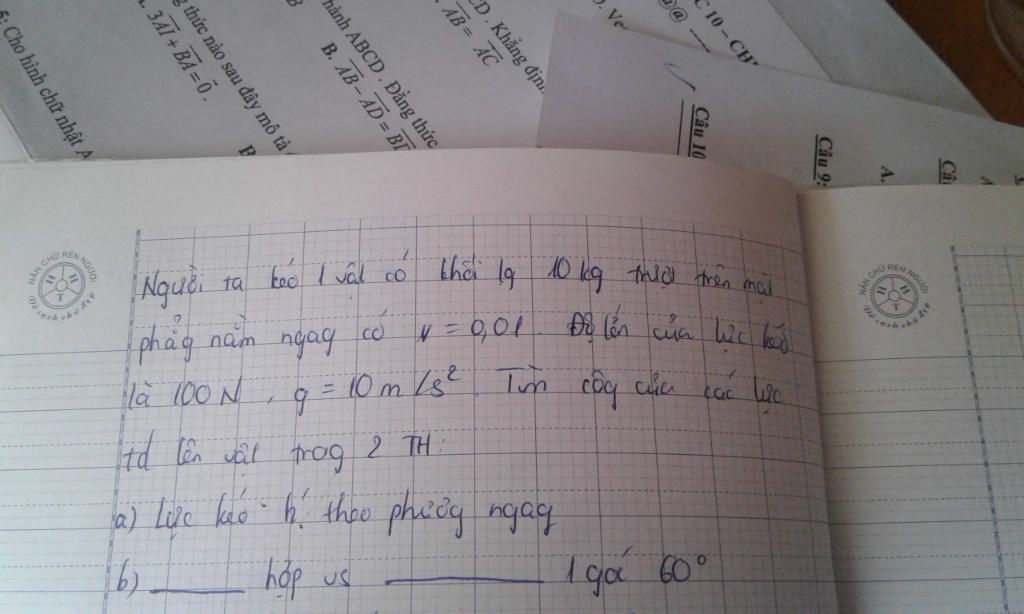 5: Cho hình chữ nhật A
A. 3AI + BA = 0.
g thức nào sau đây mô tả
B
hành ABCD. Đẳng thức
B. AB – AD = BD
CD. Khẳng định
AB = AC
C 10 – CH
@@
Câu 10
Câu 9:
A.
NẮN CHỮ RÈN NGƯỜI
H T H
Vở sạch chữ đẹp
NẮN CHỮ RÈN NGƯỜI
H T H
Vở sạch chữ đẹp
Người ta kéo 1 vật có khối lg 10 kg trượt trên mặt
phẳg nằm ngag có μ = 0,01. Độ lớn của lực kéo
là 100 N, g = 10 m/s². Tìm côg của các lực
td lên vật trog 2 TH:
a) Lực kéo h. theo phươg ngag
b) ______ hợp vs ______ 1 góc 60°